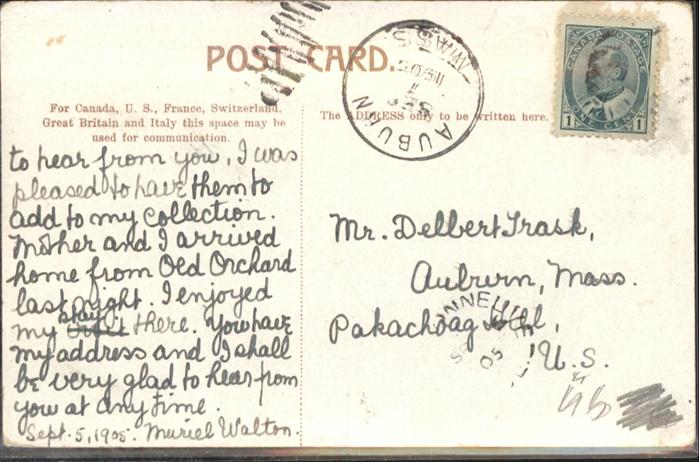 POST CARD.
For Canada, U. S., France, Switzerland,
Great Britain and Italy this space may be
used for communication.
The ADDRESS only to be written here.
AUBURN
MASS
SEP
CANADA POSTAGE
1 ONE CENT 1
to hear from you, I was
pleased to have them to
add to my collection.
Mother and I arrived
home from Old Orchard
last night. I enjoyed
my stay there. You have
my address and I shall
be very glad to hear from
you at any time.
Sept. 5, 1905. Muriel Walton.
Mr. Delbert Trask,
Auburn, Mass.
Pakachoag Hill,
U. S.
05